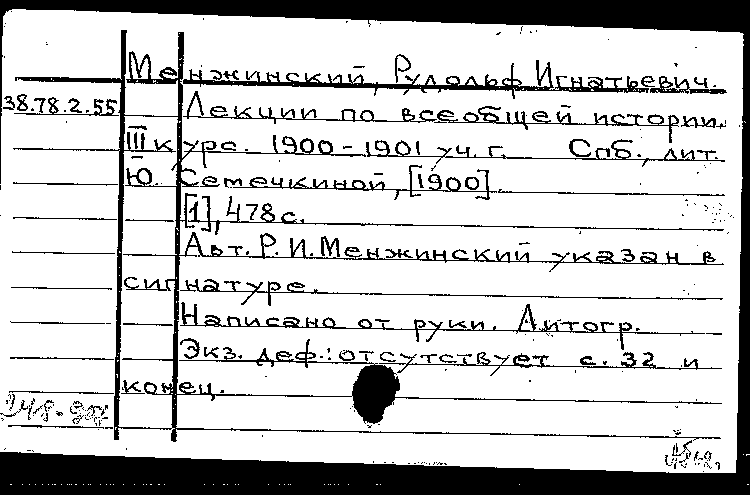 Менжинский, Рудольф Игнатьевич.
38.78.2.55 Лекции по всеобщей истории.
III курс. 1900-1901 уч. г. Спб., лит.
Ю. Семечкиной, [1900].
[1], 478 с.
Авт. Р. И. Менжинский указан в
сигнатуре.
Написано от руки. Литогр.
Экз. деф.: отсутствует с. 32 и
конец.